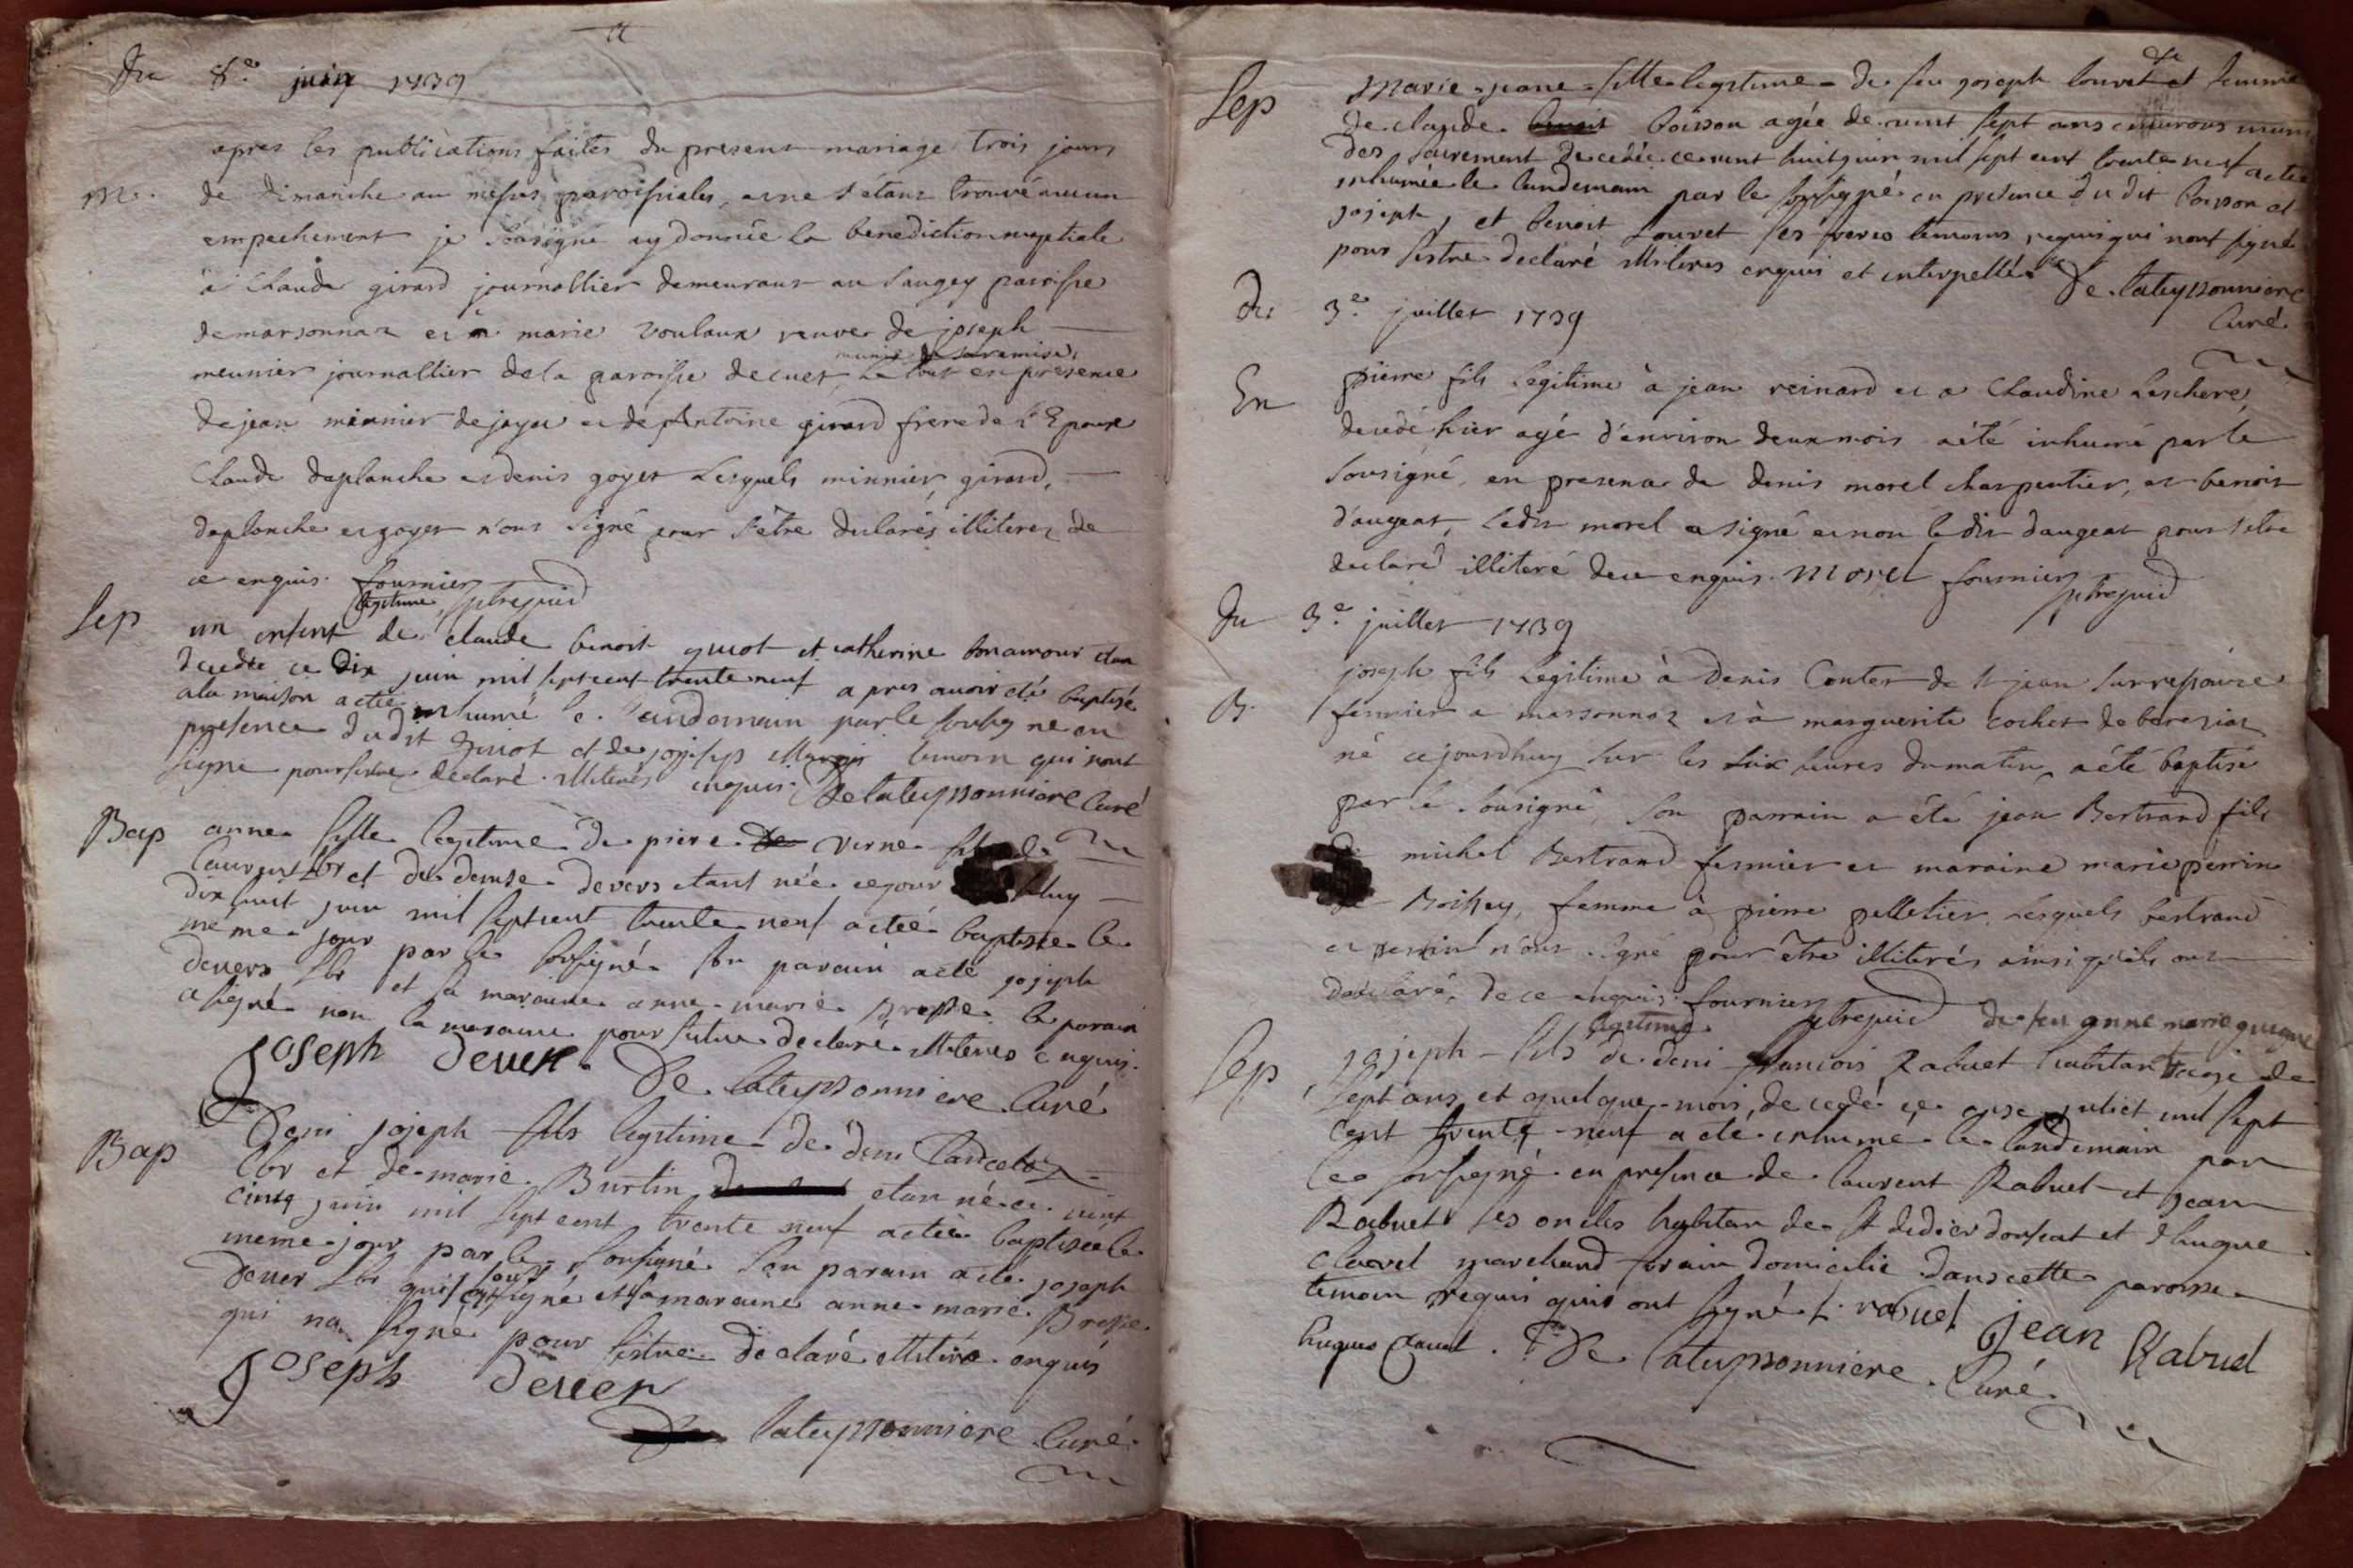 Du 8e juin 1739
apres les publications faites du present mariage trois jours
m. de dimanche au messes paroissiales, et ne s'étant trouvé aucun
empechement je sousigné ay donnée la benediction nuptiale
à Claude girard journallier demeurant au saugey paroisse
de marsonnaz et à marie voulaux veuve de joseph
munis de sa remise,
meunier journallier de la paroisse de cuet, le tout en presence
de jean minnier de jayat et de antoine girard frere de l'Epoux
Claude deplanche et denis goyet Lesquels minnier, girard,
deplanche et goyet n'ont signé pour s'être declarés illiterez de
ce enquis. fournier ptre
legitime
Sep un enfent de claude benoit guiot et catherine bonamour etan
decedée ce dix juin mil sept cent trente neuf apres avoir eté baptisé
a la maison a eteé inhumé le landemain par le soubsigne en
presence dudit guiot et de joseph temoin qui nont
signe pour sestre declaré illiterés enquis. De lateyssonniere Curé
Bap anne fille legitime de piere de verne fils de
laurent lbr et de denise devers etant née ce jour dhuy
dix huit juin mil sept cent trente neuf a eteé baptisée le
même jour par le sousigné son parain a eté joseph
devers lbr et sa maraine anne marie Brosse le parain
a signé non la maraine pour sestre declaré illiteres enquis.
Joseph Dever. De lateyssonniere Curé
Bap Deni joseph fils legitime de deni
lbr et de marie Burtin etan né ce vint
cinq juin mil sept cent trente neuf a eteé baptisée le
meme jour par le sousigné son parain a eté joseph
Dever lbr qui sous signé et sa maraine anne marie Brosse
qui na signé pour sestre declaré illitére enquis
Joseph Dever
De lateyssonniere Curé
Sep Marie jeane fille legitime de feu joseph louvet et femme
de claude benoit boisson agée de vint sept ans environs muni
des sacrement decedée ce vint huit juin mil sept cent trente neuf a eteé
inhumée le landemain par le sousigné en presence du dit boisson et
joseph, et benoit louvet ses freres temoins requis qui nont signé
pour sestre declaré illiteres enquis et interpellés De lateyssonniere
Curé
Du 3e juillet 1739
En pierre fils legitime à jean reinard et a Claudine Leschere,
decedé hier agé d'environ deux mois a été inhumé par le
sousigné, en presence de denis morel charpentier, et benoit
d'augeat, ledit morel a signé et non le dit daugeat pour s'etre
declaré illiteré de ce enquis. Morel fournier ptre
Du 3e juillet 1739
joseph fils legitime à Denis Contet de st jean sur ressouze
B. fermier a marsonnaz et à marguerite cochet de bereziat
né cejourdhuy sur les six heures du matin, a été baptisé
par le sousigné, son parrain a été jean Bertrand fils
de michel Bertrand fermier et maraine marie perrin
femme à pierre pelletier. Lesquels bertrand
et perrin n'ont signé pour être illiterés ainsi qu'ils ont
declaré, de ce enquis. fournier ptre
legitime de feu anne marie
Sep joseph fils de deni francois Rabuet habitan agé de
sept ans et quelque mois, decedé ce onse juliet mil sept
cent trente neuf a eté inhumé le landemain par
le sousigné en presence de laurent Rabuel et jean
Rabuet ses oncles habitan de st didier doussiat et d hugue
clavel marchand forain domicilie dans cette paroisse
temoin requis qui ont signé. l. rabuel jean Rabuel
hugue clavel. De lateyssonniere. Curé.